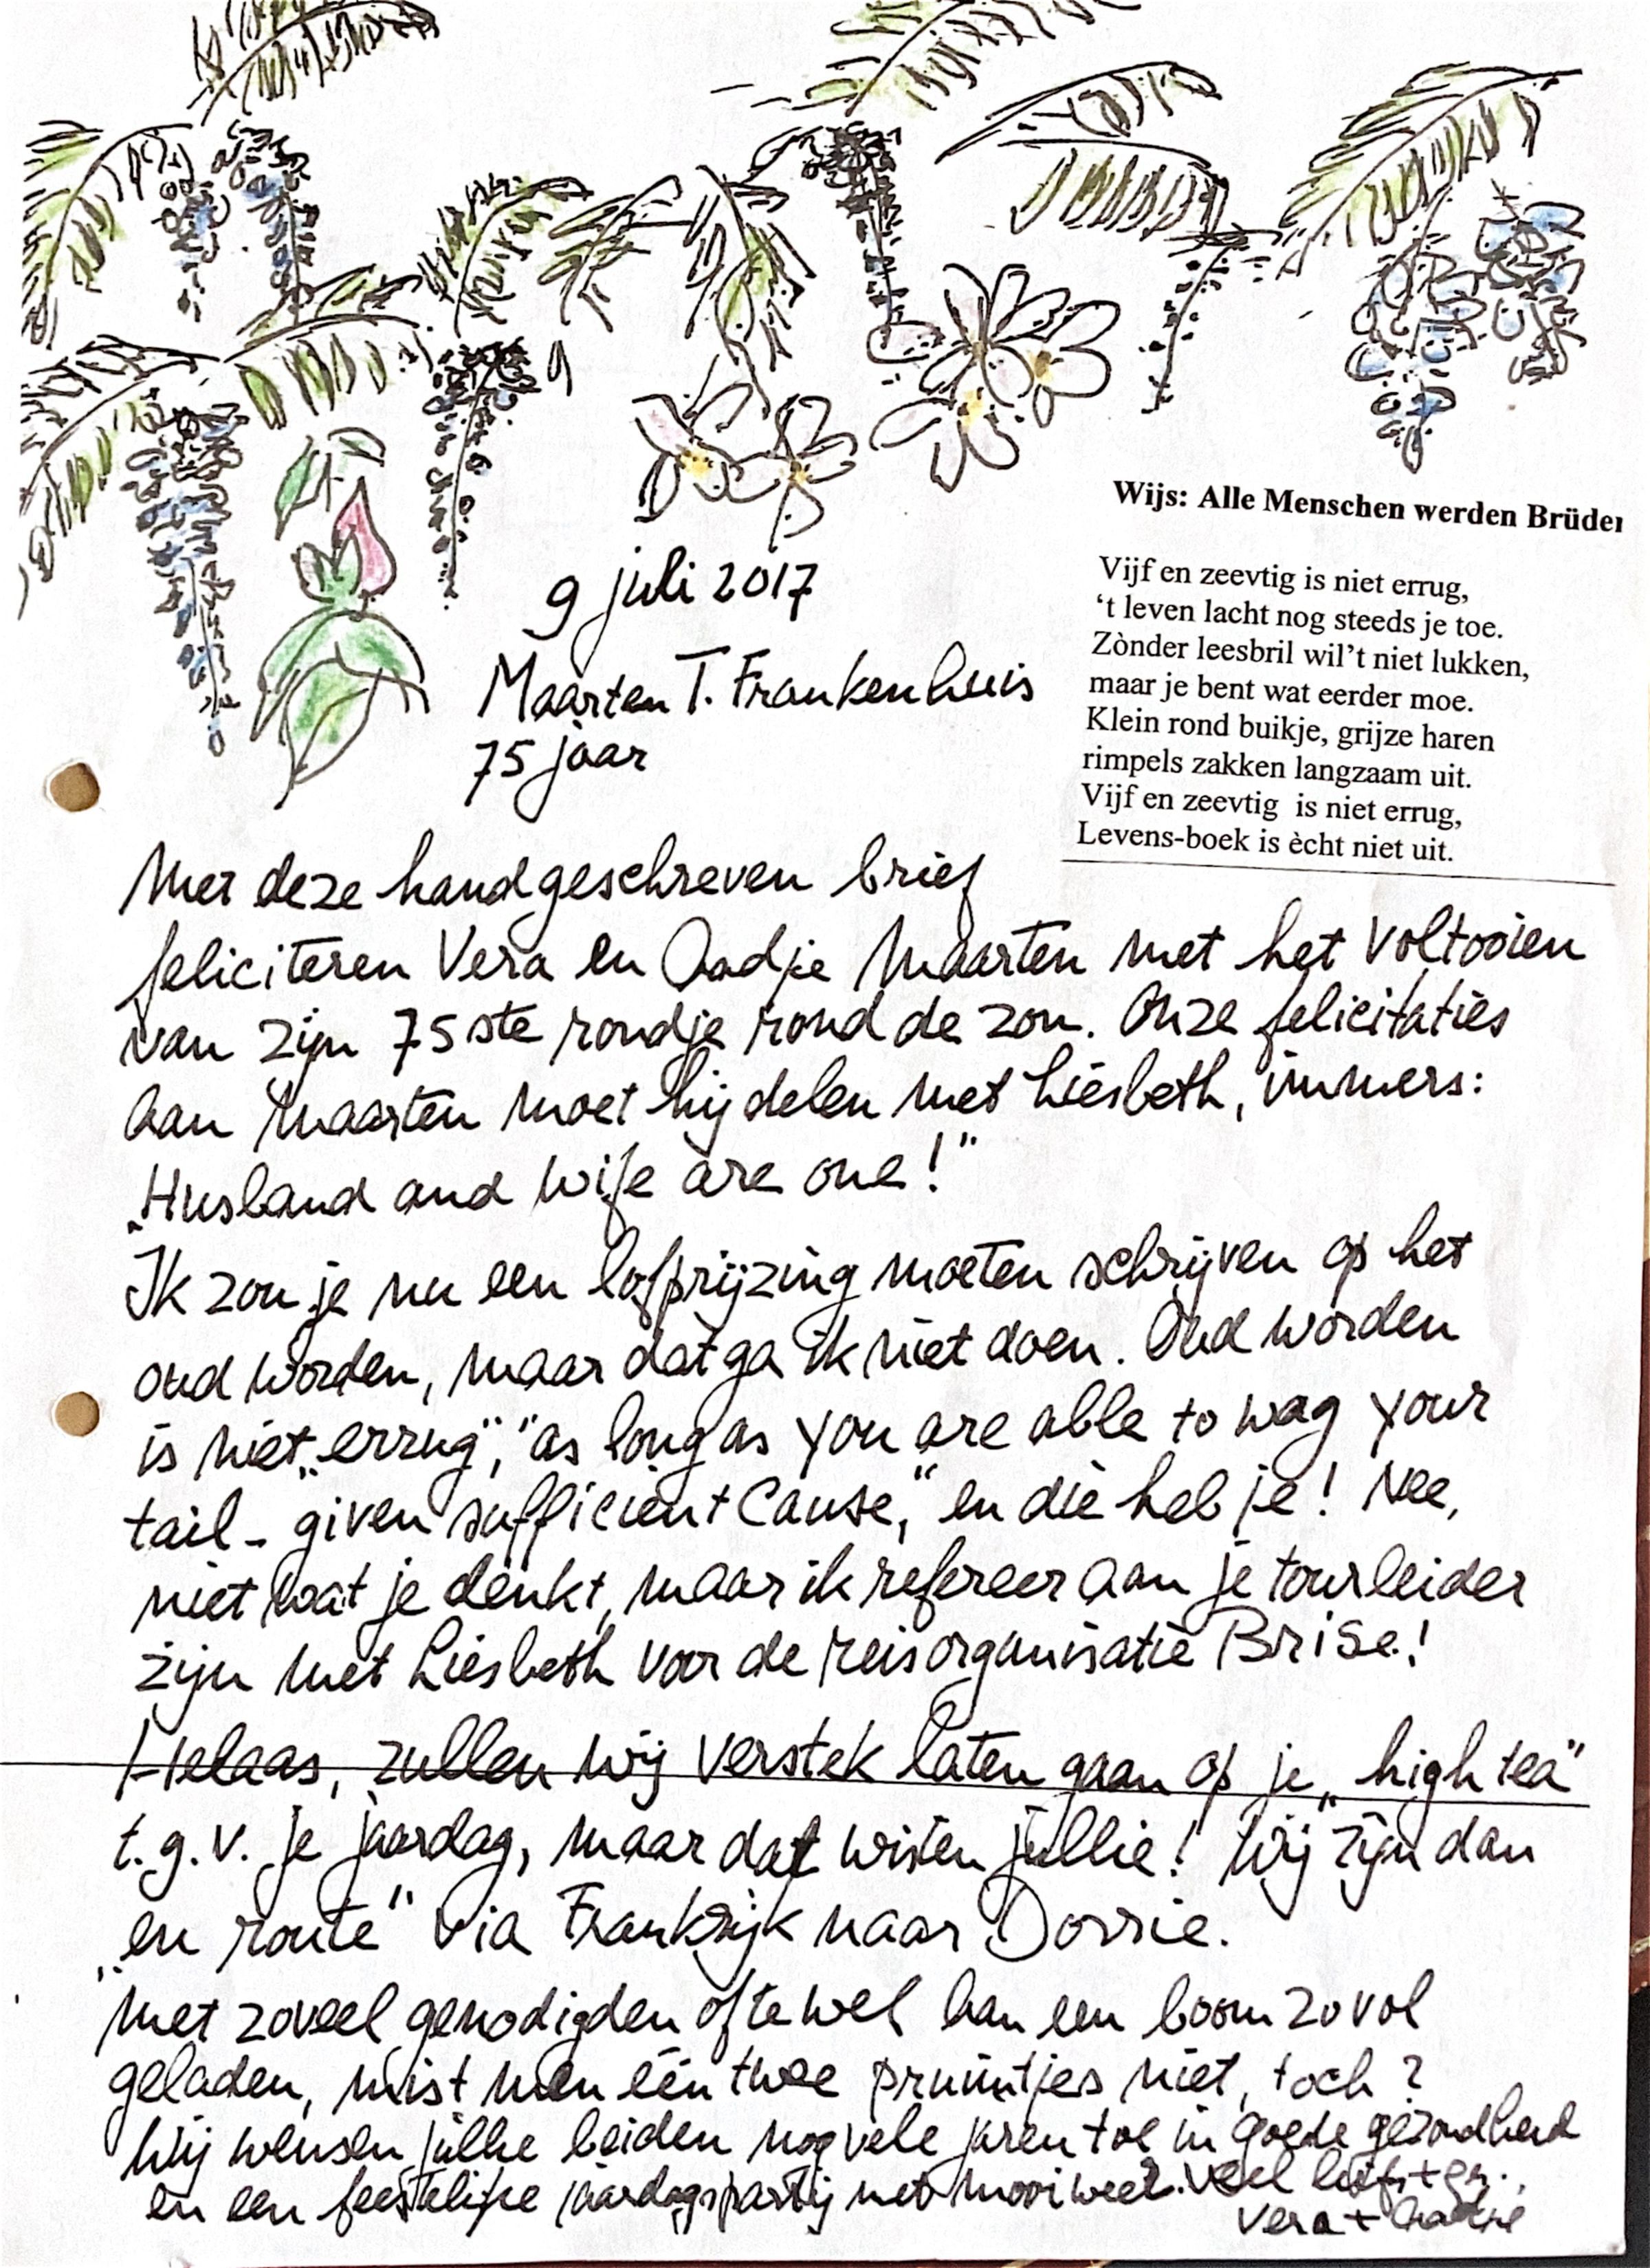 Wijs: Alle Menschen werden Brüder
Vijf en zeevtig is niet errug,
‘t leven lacht nog steeds je toe.
Zònder leesbril wil’t niet lukken,
maar je bent wat eerder moe.
Klein rond buikje, grijze haren
rimpels zakken langzaam uit.
Vijf en zeevtig is niet errug,
Levens-boek is ècht niet uit.
9 juli 2017
Maarten T. Frankenhuis
75 jaar
Met deze handgeschreven brief
feliciteren Vera en Aadje Maarten met het voltooien
van zijn 75ste rondje rond de zon. Onze felicitaties
aan Maarten moet hij delen met Liesbeth, immers:
„Husband and wife are one!”
Ik zou je nu een lofprijzing moeten schrijven op het
oud worden, maar dat ga ik niet doen. Oud worden
is niet „errug”, “as long as you are able to wag your
tail - given sufficient cause,“ en die heb je! Nee,
niet wat je denkt, maar ik refereer aan je tourleider
zijn met Liesbeth voor de reisorganisatie BRiSe!
Helaas, zullen wij verstek laten gaan op je „high tea”
t.g.v. je jaardag, maar dat wisten jullie! Wij zijn dan
„en route” via Frankrijk naar Dorrie.
Met zoveel genodigden oftewel aan een boom zo vol
geladen, mist men één twee pruimtjes niet, toch?
Wij wensen jullie beiden nog vele jaren toe in goede gezondheid
en een feestelijke jaardagspartij met mooi weer. Veel liefs + gr.,
Vera + Aadje